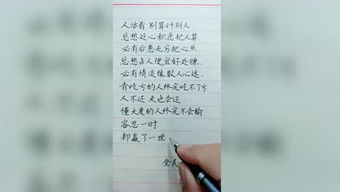 人活着 别算计别人
总想处心积虑把人算
必有后患无穷把心
总想占人便宜好处赚
必有情淡缘散人心远
肯吃亏的人终究吃不了亏
人不还 天也会还
懂大度的人终究不会输
容忍一时
却赢了一世